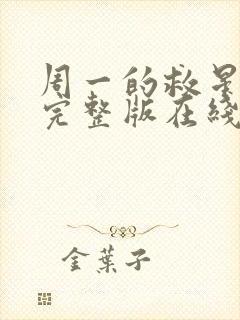 周一的救星
完整版在綫
金葉子